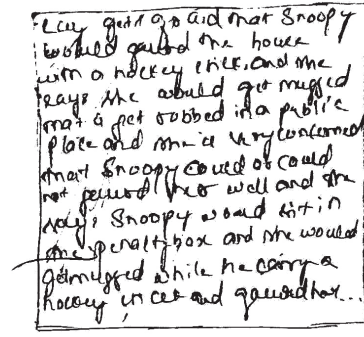 Lucy gets afraid that Snoopy
would gaurd the house
with a hockey stick, and she
says she would get mugged
that is get robbed in a public
place and she is very concerned
that Snoopy could or could
not gaurd her well and she
says, Snoopy would sit in
the penalty box and she would
get mugged while he carry a
hockey stick and gaurd her...